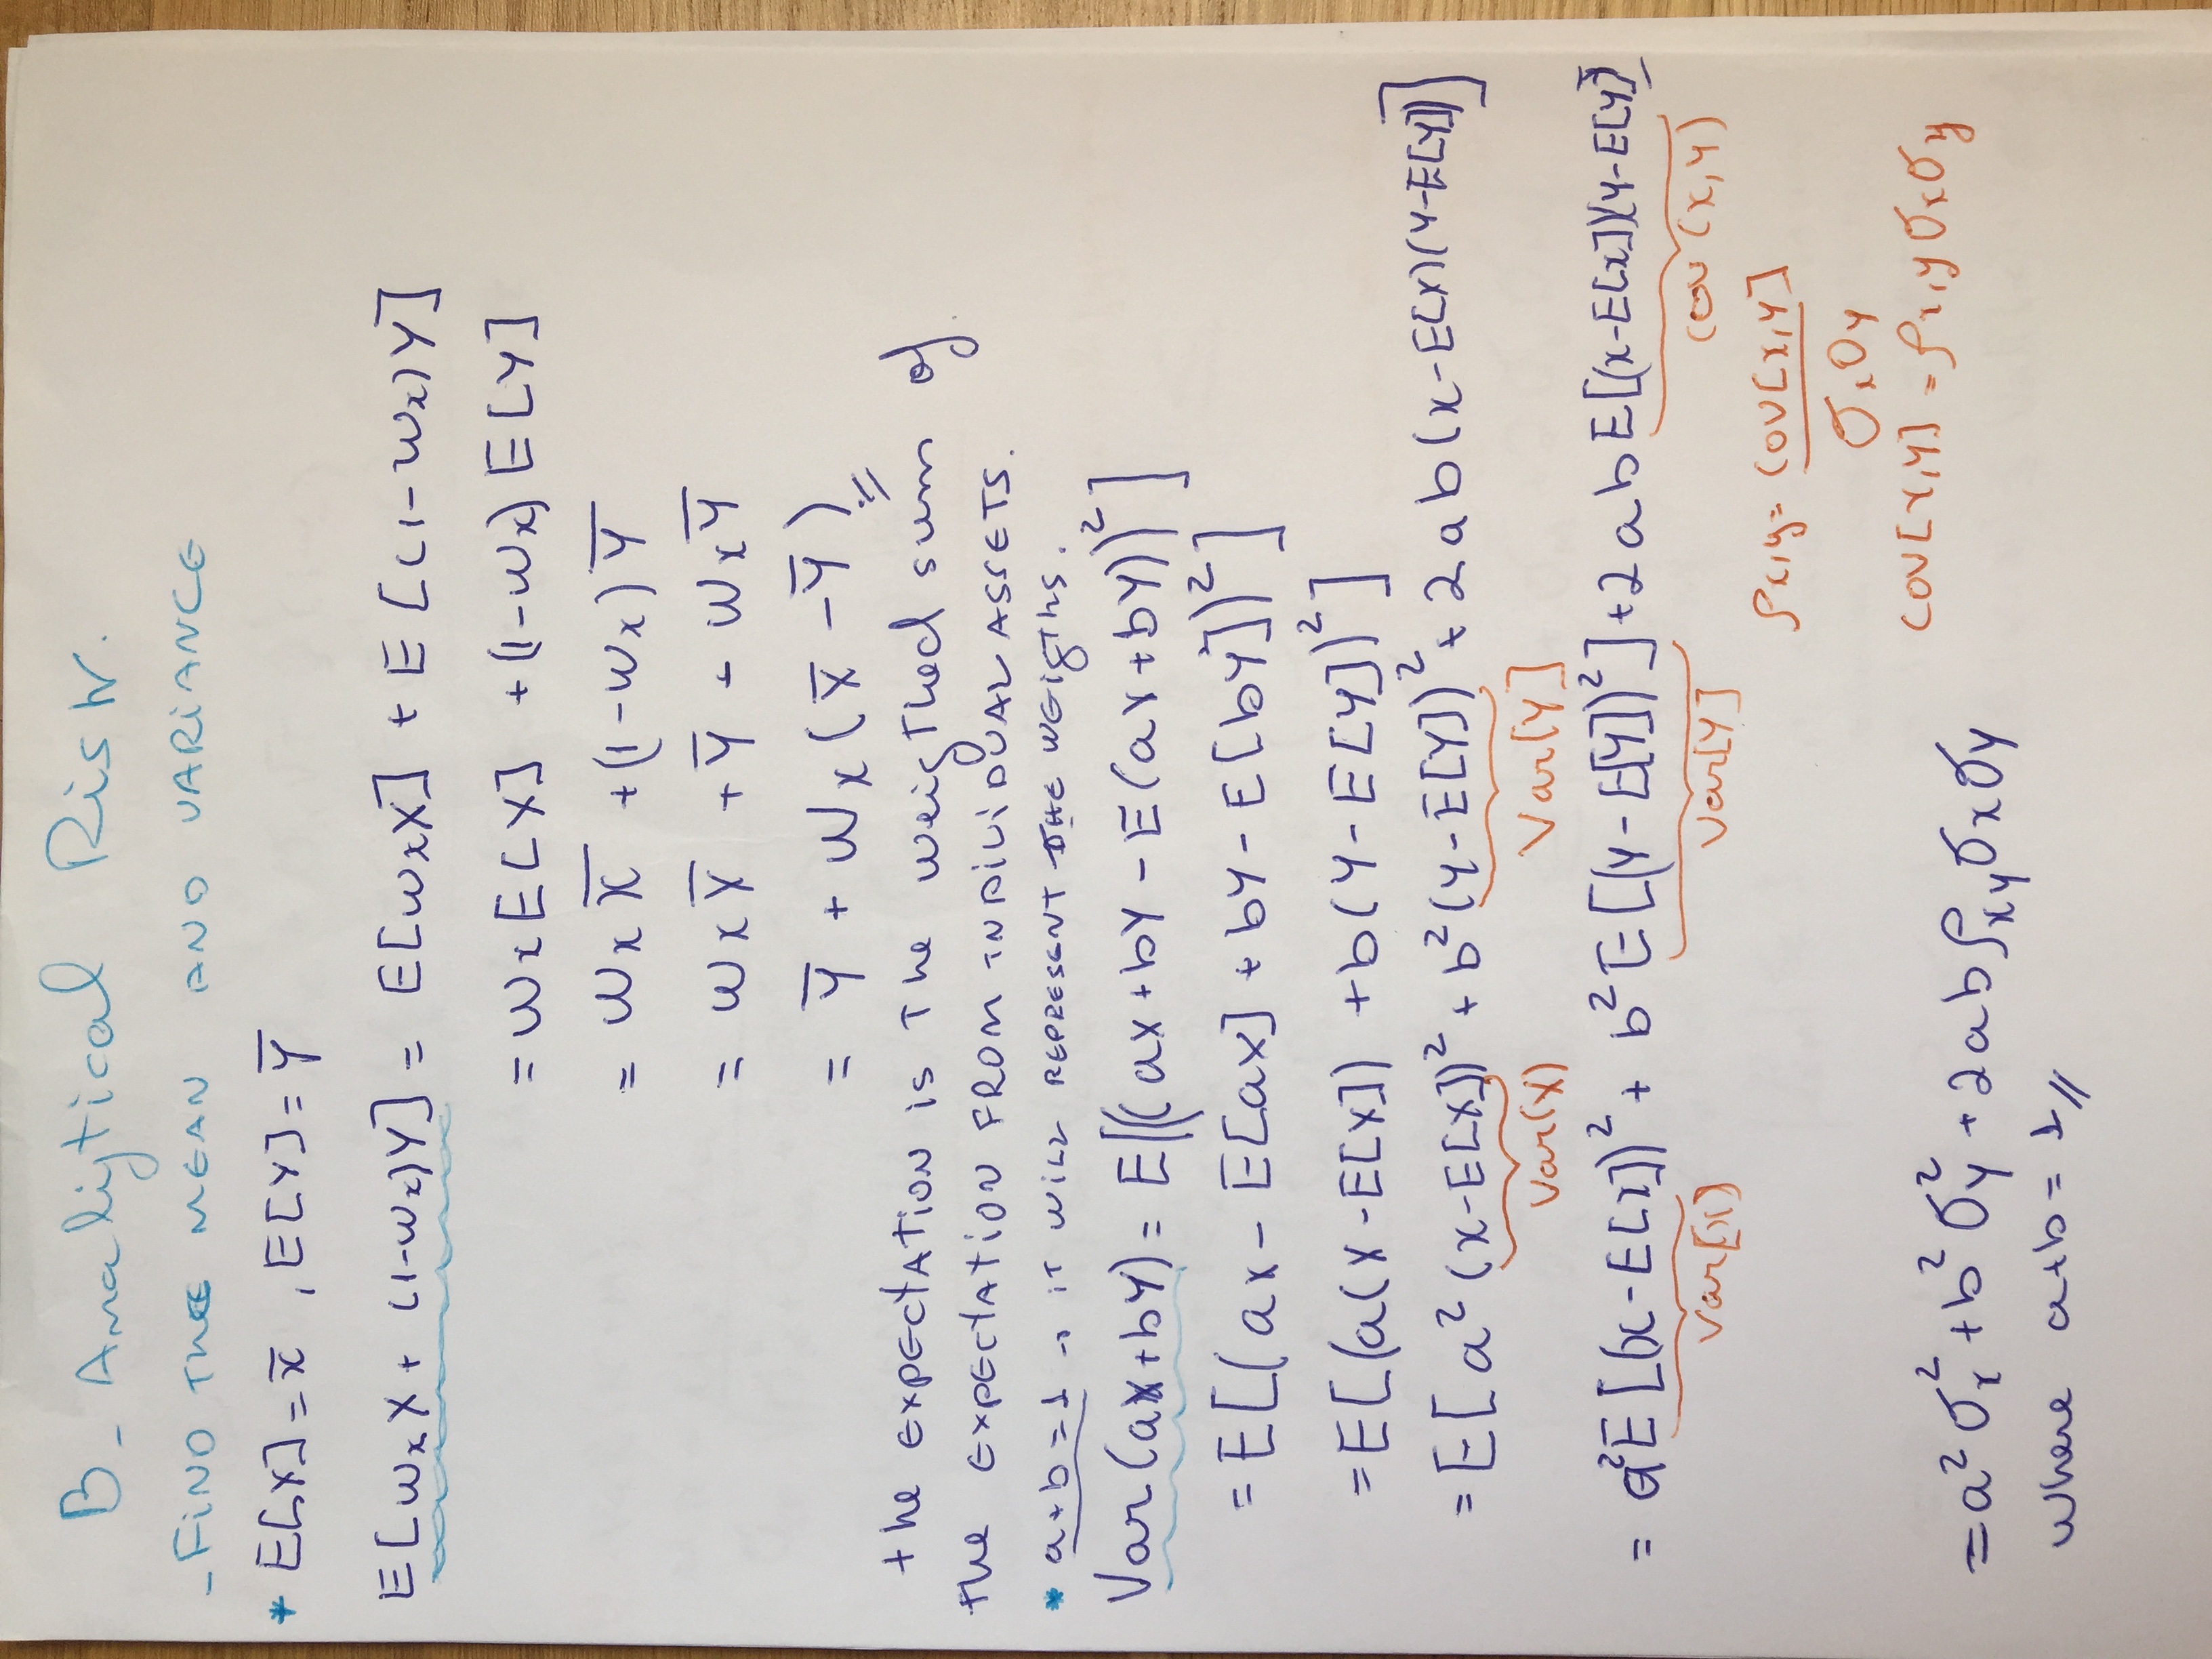 B- Analytical Risk.
- FIND THE MEAN AND VARIANCE
* E[X] = x̄ , E[Y] = Ȳ
E[wₓX + (1-wₓ)Y] = E[wₓX] + E[(1-wₓ)Y]
= wₓE[X] + (1-wₓ) E[Y]
= wₓ X̄ + (1-wₓ) Ȳ
= wₓ X̄ + Ȳ - wₓ Ȳ
= Ȳ + wₓ (X̄ - Ȳ) //
the EXPECTATION is The weigthed sum of
the EXPECTATION FROM INDIVIDUAL ASSETS.
* a+b=1 → iT WILL REPRESENT THE WEigThs.
Var(ax+by) = E[((ax+by - E(ax+by))²]
= E[(ax - E[ax] + by - E[by])²]
= E[(a(x - E[x]) + b(y - E[y])²]
= E[a² (x-E[x])² + b² (y-E[y])² + 2ab(x-E[x)(y-E[y])]
Var(x) Var[y]
= a²E[(x-E[x])² + b² E[(y-E[y])²] + 2ab E[(x-E[x])(y-E[y]]
Var[x] Var[y] cov(x,y)
ρx,y = COV[x,y]
σx σy
COV[x,y] = ρx,y σx σy
= a² σx² + b² σy² + 2ab ρxy σx σy
where a+b = 1 //